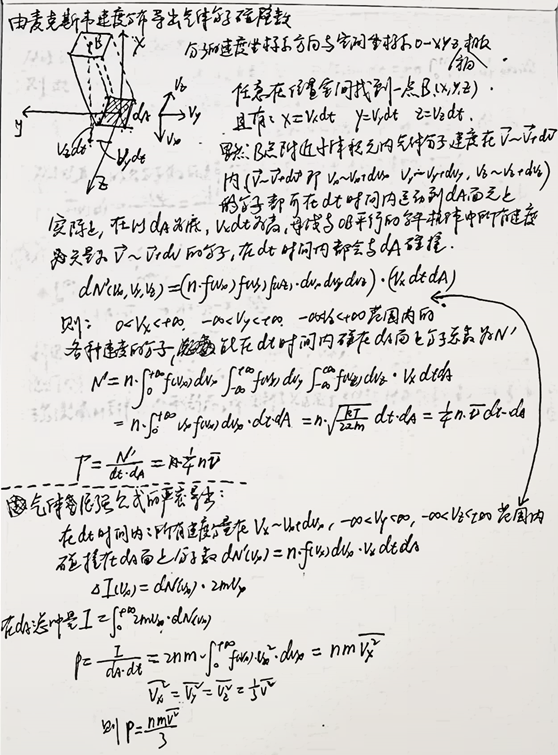 由麦克斯韦速度分布导出气体分子碰壁数
分子的速度坐标系方向与空间坐标系O-XYZ相
X
B
dA
y
Z
Vx
Vy
Vz
Vzdt
Vydt
任意在位置空间找到一点B(X,Y,Z).
且有: X=Vxdt  y=Vydt  Z=Vzdt.
显然B点附近小体积元内气体分子速度在 V⃗~V⃗+dV⃗
内 (V⃗~V⃗+dV⃗ 即 Vx~Vx+dVx  Vy~Vy+dVy, Vz~Vz+dVz)
的分子都可在dt时间内运动到dA面元上
实际上, 在以dA为底, Vxdt为高, 母线与OB平行的斜柱体中所有速度
矢量为 V⃗~V⃗+dV⃗ 的分子, 在dt时间内都会与dA碰撞.
dN'(Vx,Vy,Vz)=(n·f(Vx)f(Vy)f(Vz)·dVxdVydVz)·(VxdtdA)
则: 0<Vx<+∞, -∞<Vy<+∞, -∞<Vz<+∞范围内的
各种速度的分子 能在dt时间内碰在dA面上分子总数为N'
N'=n·∫₀^{+∞}f(Vx)dVx ∫_{-∞}^{+∞}f(Vy)dVy ∫_{-∞}^{+∞}f(Vz)dVz·VxdtdA
=n·∫₀^{+∞}Vxf(Vx)dVx·dt·dA=n·√(kT/2πm) dt·dA=¼n·v̄dt·dA
Γ=N'/(dt·dA)=¼nv̄
气体压强公式的严密导出:
在dt时间内: 所有速度分量在Vx~Vx+dVx, -∞<Vy<∞, -∞<Vz<+∞范围内
碰撞在dA面上分子数dN'(Vx)=n·f(Vx)dVx·VxdtdA
ΔI(Vx)=dN'(Vx)·2mVx
在dA总冲量I=∫₀^{+∞}2mVx·dN'(Vx)
p=I/(dA·dt)=2nm·∫₀^{+∞}f(Vx)·Vx²·dVx=nm\overline{Vx²}
\overline{Vx²}=\overline{Vy²}=\overline{Vz²}=⅓\overline{V²}
则p=nm\overline{V²}/3